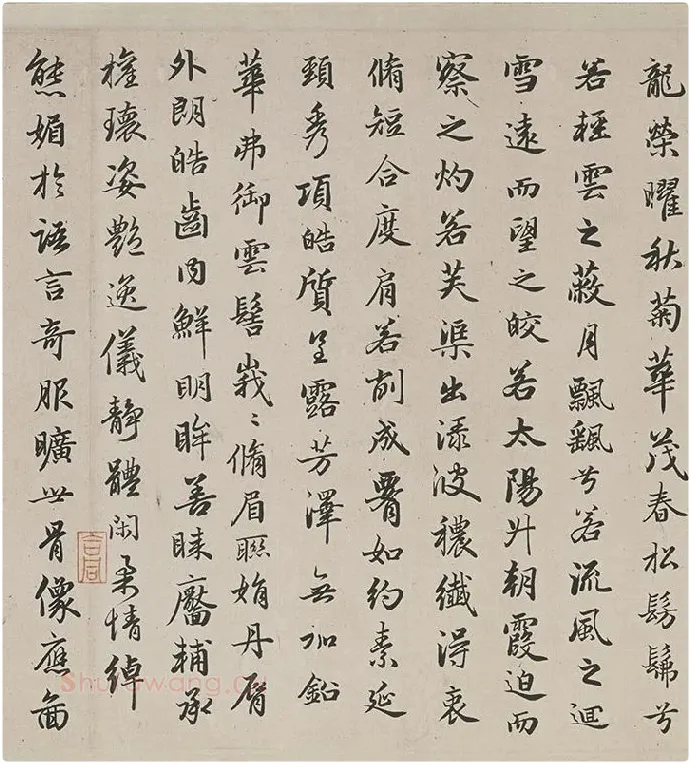 龍榮曜秋菊華茂春松髣髴兮
若輕雲之蔽月飄颻兮若流風之迴
雪遠而望之皎若太陽升朝霞迫而
察之灼若芙渠出淥波穠纖得衷
脩短合度肩若削成腰如約素延
頸秀項皓質呈露芳澤無加鉛
華弗御雲髻峩〻脩眉聯娟丹脣
外朗皓齒内鮮明眸善睞靨輔承
權瓌姿艷逸儀靜體閑柔情綽
態媚於語言奇服曠世骨像應圖